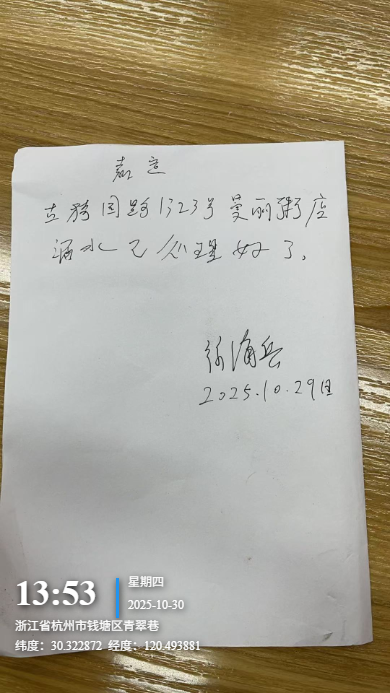 嘉定
路1323号曼丽粥店
漏水已处理好了。
2025.10.29日
13:53
星期四
2025-10-30
浙江省杭州市钱塘区青翠巷
纬度：30.322872 经度：120.493881